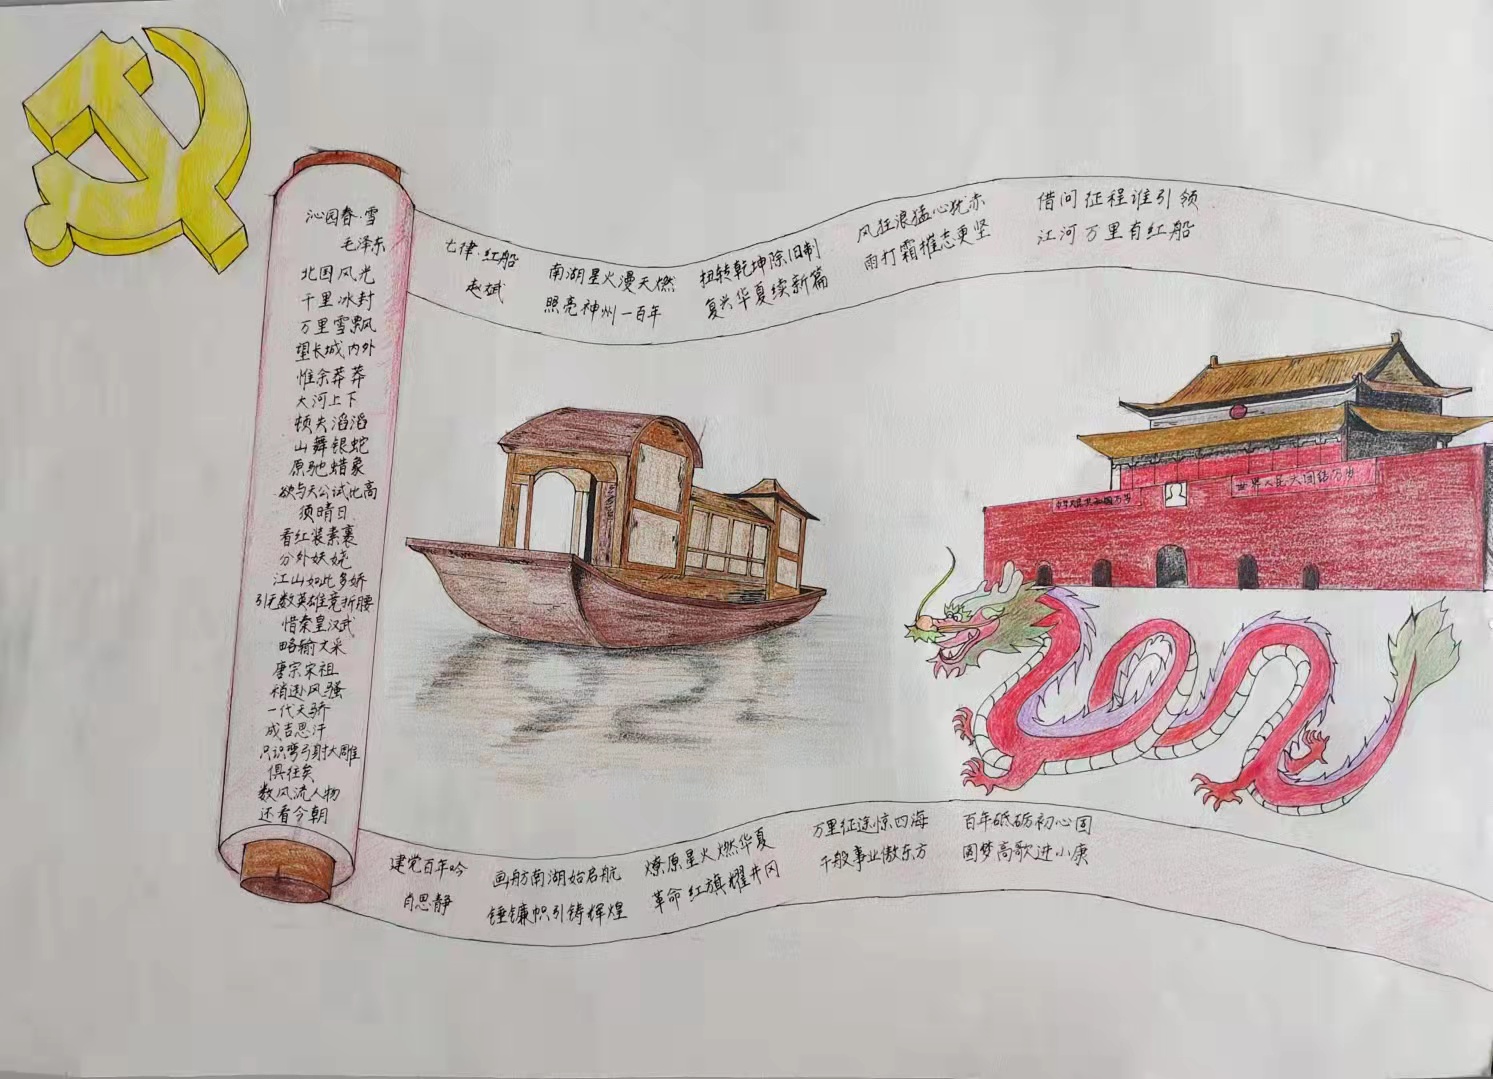 沁园春·雪
毛泽东
北国风光
千里冰封
万里雪飘
望长城内外
惟余莽莽
大河上下
顿失滔滔
山舞银蛇
原驰蜡象
欲与天公试比高
须晴日
看红装素裹
分外妖娆
江山如此多娇
引无数英雄竞折腰
惜秦皇汉武
略输文采
唐宗宋祖
稍逊风骚
一代天骄
成吉思汗
只识弯弓射大雕
俱往矣
数风流人物
还看今朝
七律·红船
赵斌
南湖星火漫天燃
照亮神州一百年
扭转乾坤除旧制
复兴华夏续新篇
风狂浪猛心犹赤
雨打霜摧志更坚
借问征程谁引领
江河万里有红船
中华人民共和国万岁
世界人民大团结万岁
建党百年吟
肖思静
画舫南湖始启航
锤镰帜引铸辉煌
燎原星火燃华夏
革命红旗耀井冈
万里征途惊四海
千般事业傲东方
百年砥砺初心固
圆梦高歌进小康